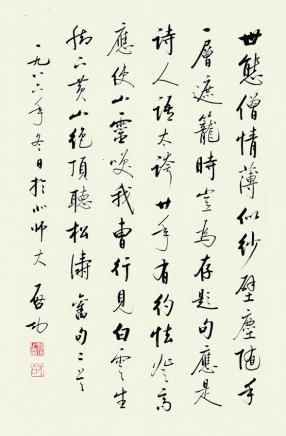 世態僧情薄似紗壁塵隨手
一層遮籠時豈為存題句應是
詩人語太誇廿年有約怯登高
應使山靈笑我曹行見白雲生
腳下黃山絕頂聽松濤舊句二首
一九八六年冬日於北師大 啟功